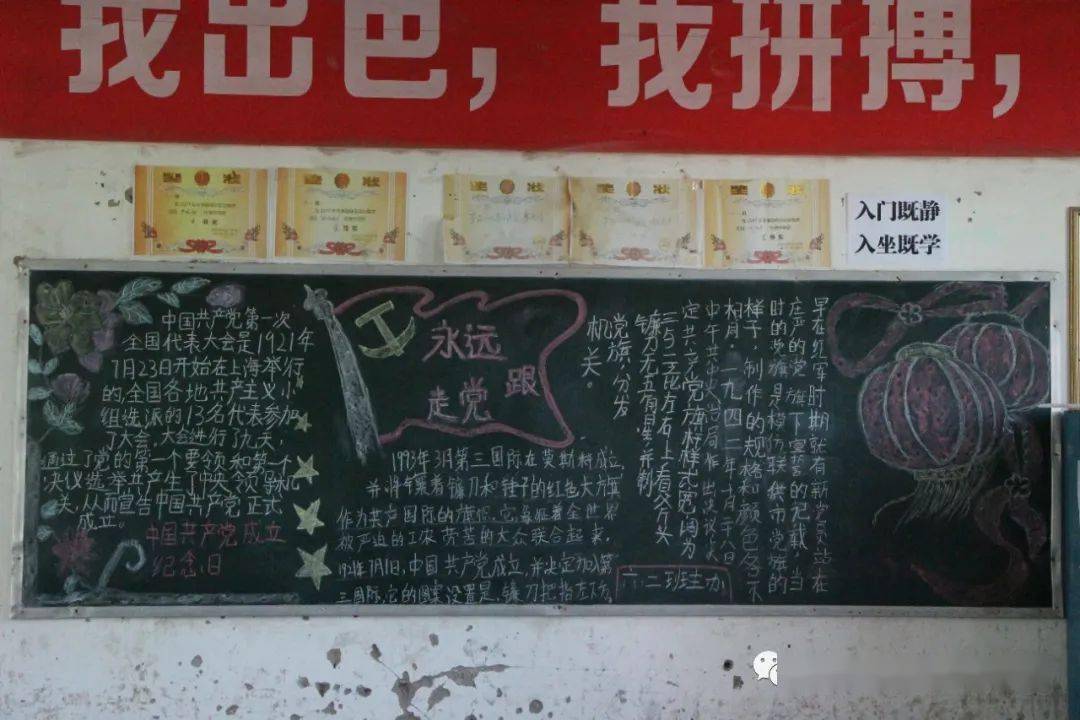 我出色，我拼搏，
奖状
奖状
奖状
奖状
奖状
入门既静
入坐既学
中国共产党第一次
全国代表大会是1921年
7月23日开始在上海举行
的,全国各地共产主义小
组选派的13名代表参加
了大会,大会进行了九天,
通过了党的第一个要领和第一个
决议选举共产生了中央领导机
关,从而宣告中国共产党正式
成立。
中国共产党成立
纪念日
永远
跟
走党
1993年3月第三国际在莫斯科成立,
并将年票着镰刀和锤子的红色大旗
作为共产国际的旗帜,它象征着全世界
被严迫的工农劳苦的大众联合起来,
1921年7月1日,中国共产党成立,并决定加入第
三国际,它的图案设置是,镰刀把指左下方。
早在红军时期就有新党员站在
庄严的党旗下宣誓的记载,当
时的党旗是模仿联供市党旗的
样子,制作的规格和颜色各不
相同,一九四二年六月十八日
中午共中央政治局作出决议大
定共产党旗样式宽阔为
三与二比左右上着斧头
镰刀无五有星并制
党旗,分发
机关。
六.二班主办